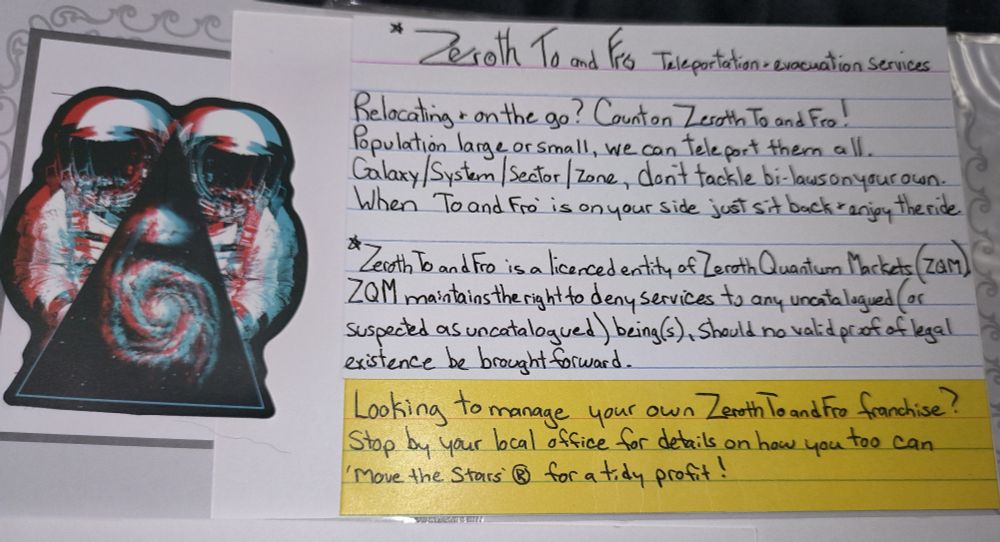 * Zeroth To and Fro Teleportation + evacuation services
Relocating + on the go? Count on Zeroth To and Fro!
Population large or small, we can teleport them all.
Galaxy/System/Sector/Zone, don't tackle bi-laws on your own.
When 'To and Fro' is on your side just sit back + enjoy the ride
*Zeroth To and Fro is a licenced entity of Zeroth Quantum Markets (ZQM)
ZQM maintains the right to deny services to any uncatalogued (or
suspected as uncatalogued) being(s), should no valid proof of legal
existence be brought forward.
Looking to manage your own Zeroth To and Fro franchise?
Stop by your local office for details on how you too can
'Move the Stars' ® for a tidy profit!